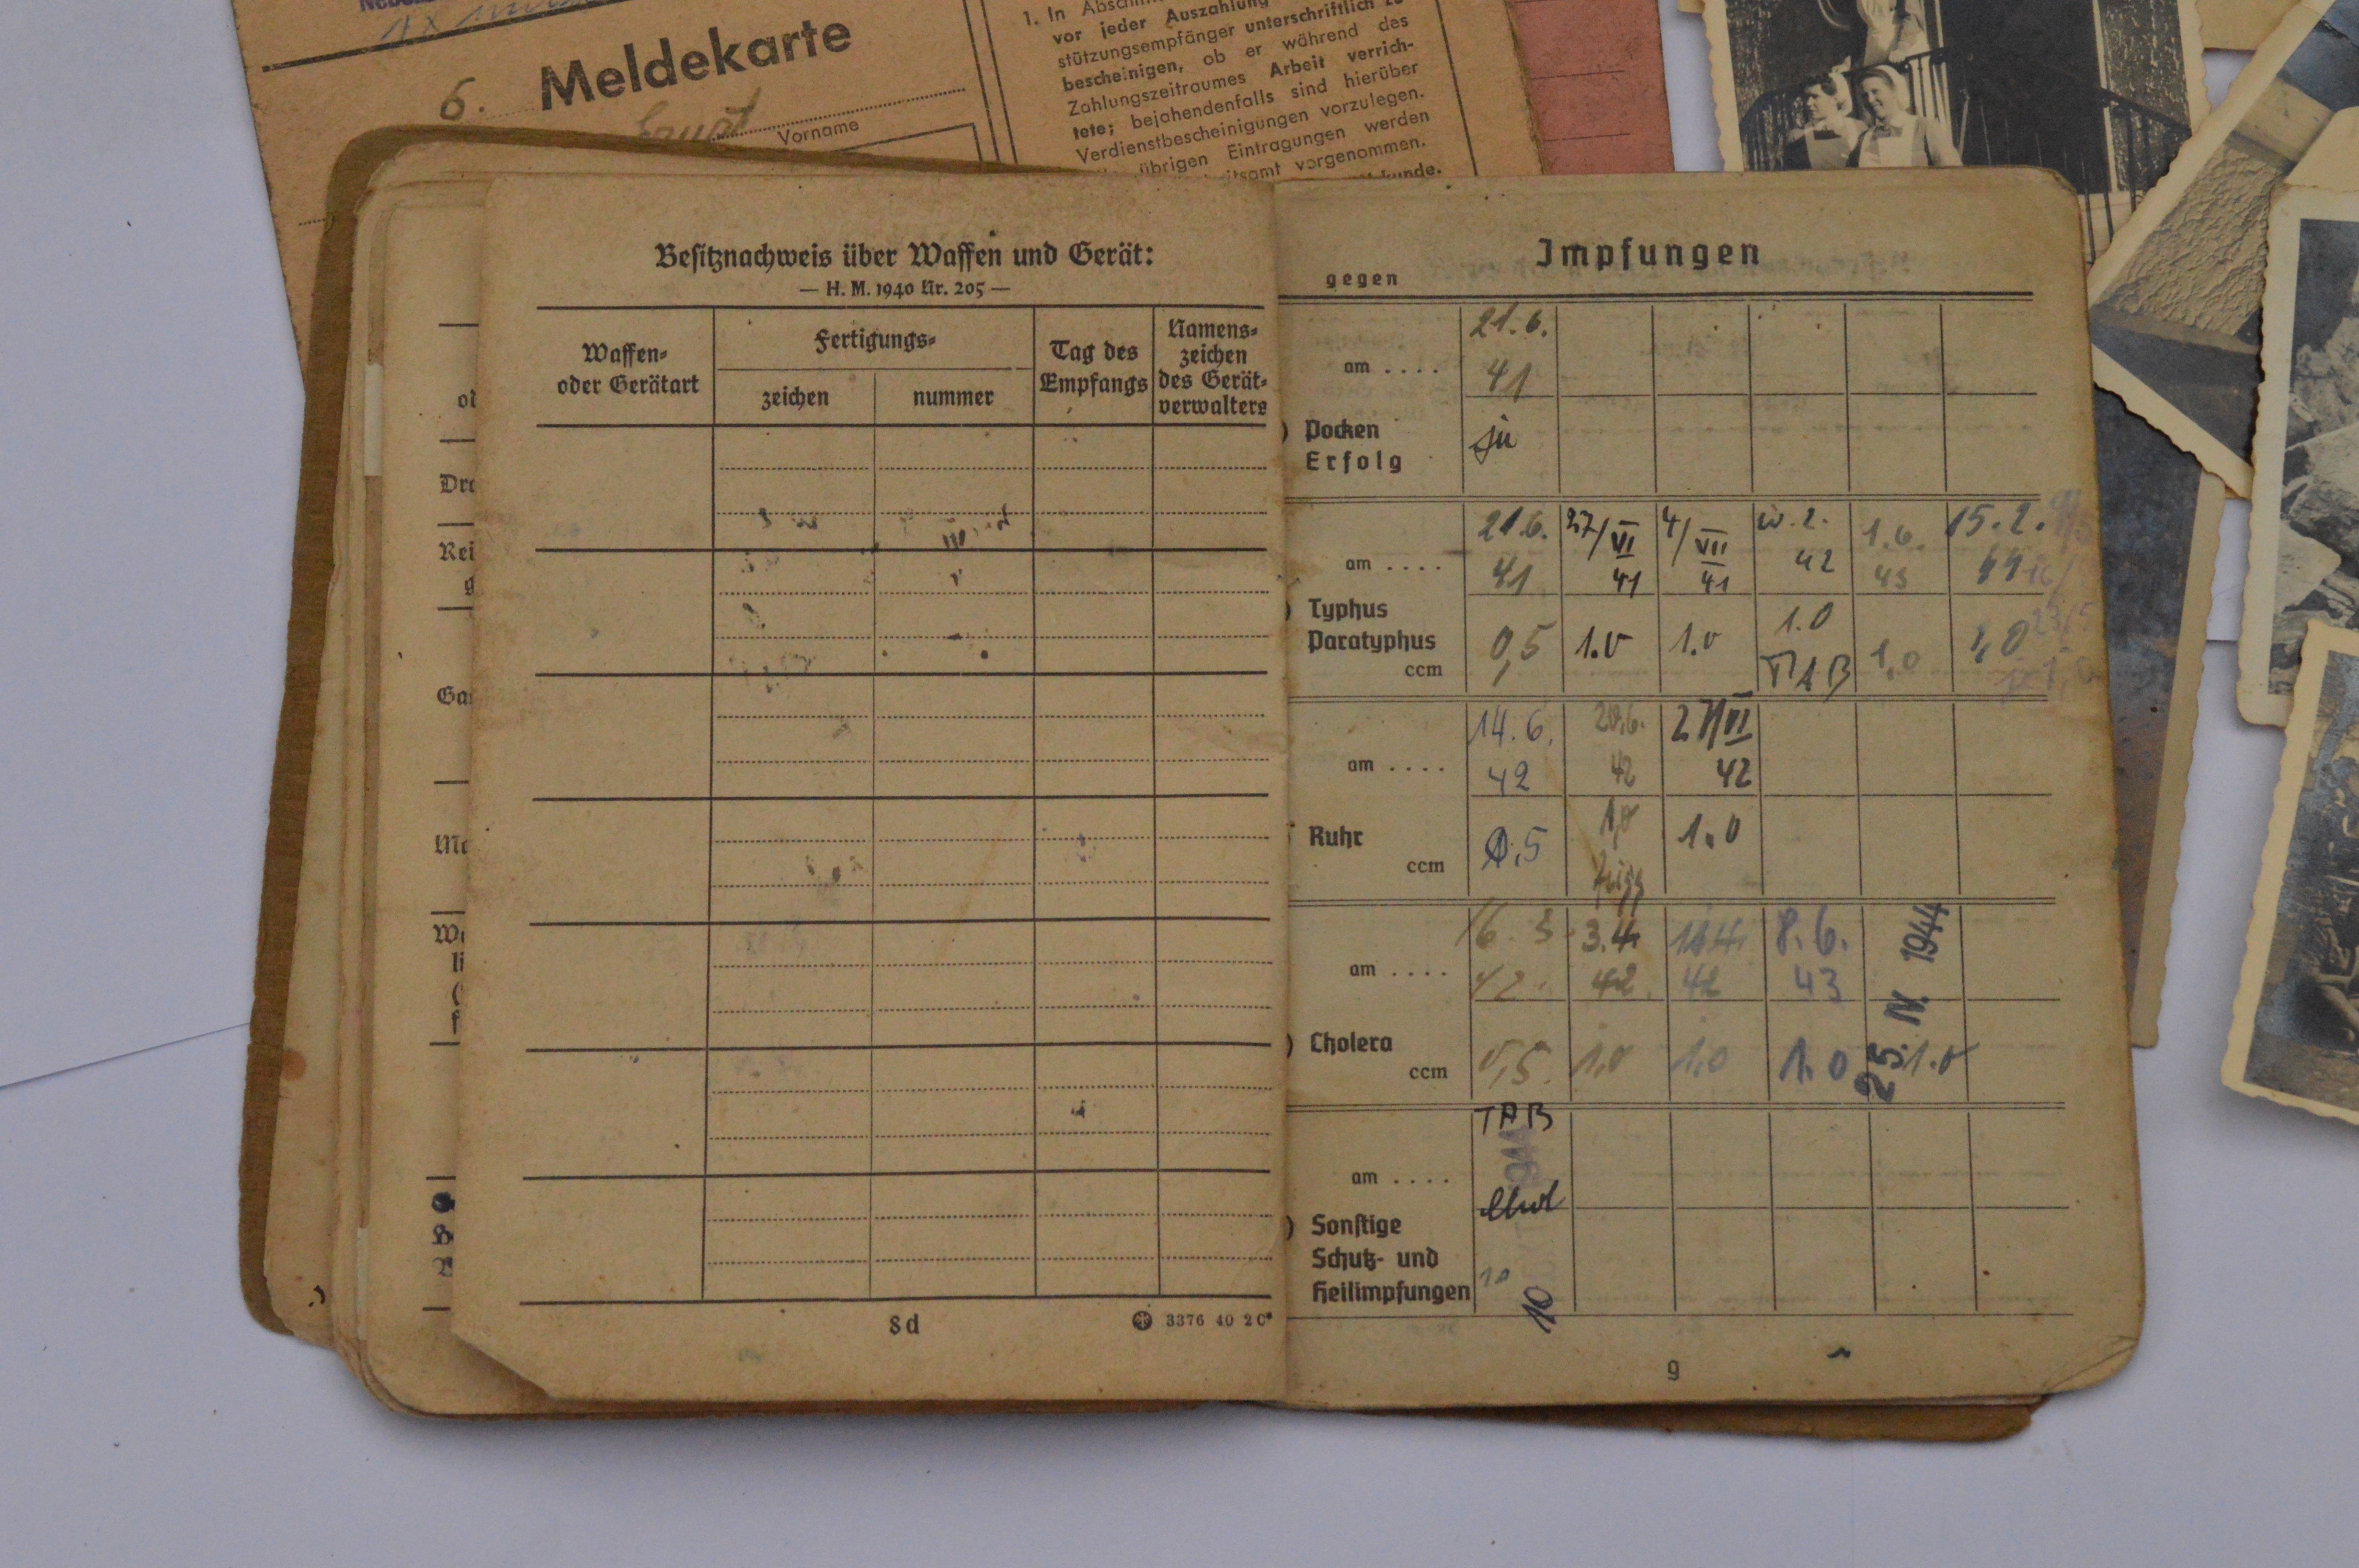 6. Meldekarte
Ernst
Vorname
1. In
vor jeder Auszahlung unterschriftlich zu
stützungsempfänger
während des
bescheinigen, ob er
Arbeit verrich-
Zahlungszeitraumes
sind hierüber
tete; bejahendenfalls
Verdienstbescheinigungen vorzulegen.
übrigen Eintragungen werden
vorgenommen.
Besitznachweis über Waffen und Gerät:
— H. M. 1940 Nr. 205 —
Waffen-
oder Gerätart
Fertigungs-
zeichen
nummer
Tag des
Empfangs
Namens-
zeichen
des Gerät-
verwalters
8d
3376 40 2C
Impfungen
gegen
am .... 21.6. 41
Pocken
Erfolg ja
am .... 21.6. 41 27/VI 41 4/VII 41 2. 42 1.6. 43 15.2. 44
Typhus
Paratyphus
ccm 0,5 1.0 1.0 1.0 TAB 1,0 1,0
am .... 14.6. 42 20.6. 42 27/VI 42
Ruhr
ccm 0,5 1,0 1.0
am .... 16.3. 42. 3.4. 42. 42 8.6. 43 25. IV. 1944
Cholera
ccm 0,5. 1.0 1,0 1.0 1.0
TAB
am ....
Sonstige
Schutz- und
Heilimpfungen 10
9